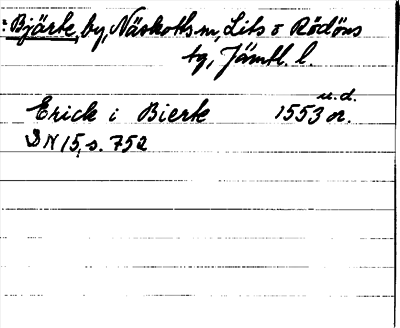 : Bjärte, by, Näskotts sn, Lits o Rödöns
tg, Jämtl. l.
u.d.
Erick i Bierte 1553 or.
DN 15, s. 752